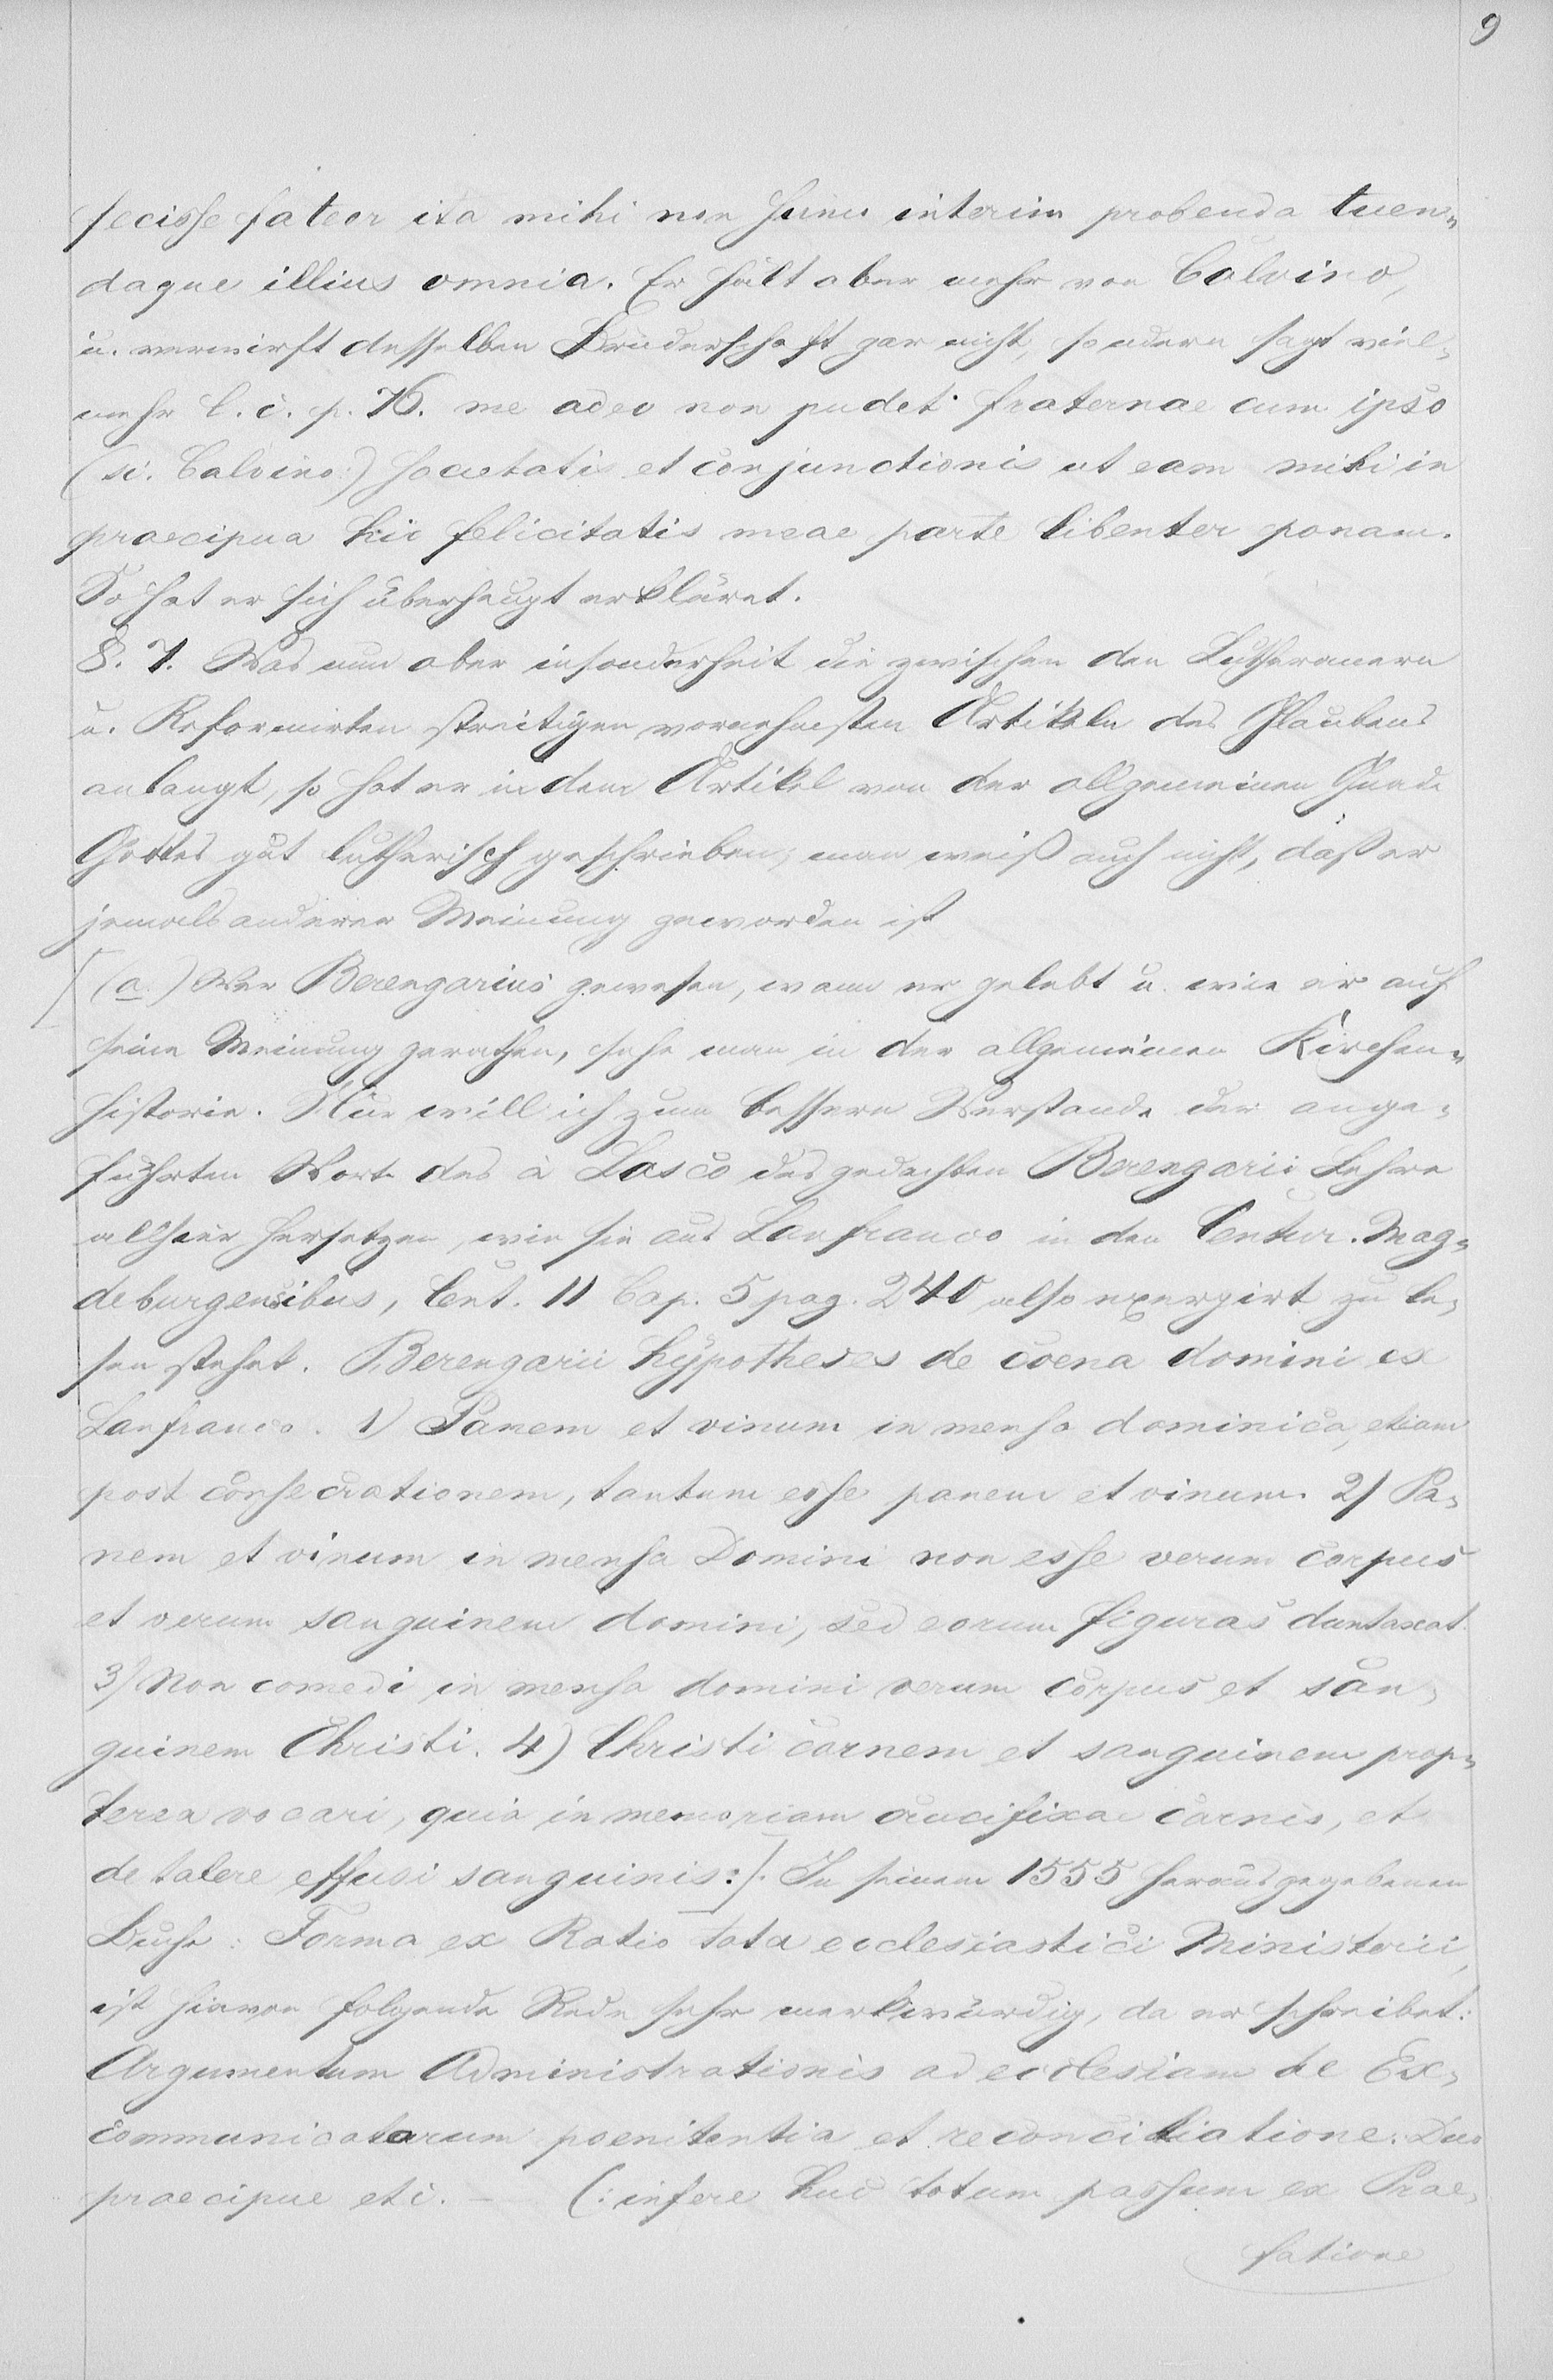 9
fecisse fateor ita mihi non sumo interim probenda tuen-
daque illius omnia. Er hält aber mehr von Calvino,
u. verwirft desselben Brüderschaft gar nicht, sondern sagt viel-
mehr l. c. p. 76. me adeo non pudet fraternae cum ipso
(sc. Calvino:) societatis et conjunctionis ut eam mihi in
praecipua hic felicitatis meae parte libenter ponam.
So hat er sich überhaupt erkläret.
§. 7. Was nun aber insonderheit die zwischen den Lutheranern
u. Reformirten streitigen vornehmsten Artikeln des Glaubens
anlangt, so hat er in dem Artikel von der allgemeinen Gnade
Gottes gut lutherisch geschrieben; man weiß auch nicht, daß er
jemals anderer Meinung geworden ist
[(a.) Wer Berengarius gewesen, wann er gelebt u. wie er auf
seine Meinung gerathen, sehe man in der allgemeinen Kirchen-
historie. Nur will ich zum bessern Verstande der ange-
führten Worte des à Lasco des gedachten Berengarii Lehre
allhier hersetzen, wie sie aus Lanfranco in den Centur. Mag-
deburgensibus, Cent. 11 Cap. 5 pag. 240 also excerpirt zu le-
sen stehet. Berengarii hypotheses de coena domini ex
Lanfranco. 1) Panem et vinum in mensa dominica, etiam
post consecrationem, tantum esse panem et vinum. 2) Pa-
nem et vinum in mensa Domini non esse verum corpus
et verum sanguinem domini, sed eorum figuras duntaxat.
3) Non comedi in mensa domini verum corpus et san-
guinem Christi. 4) Christi carnem et sanguinem prop-
terea vocari, quia in memoriam crucifixae carnis, et
de latere effusi sanguinis:]. In seinem 1555 herausgegebenen
Buche: Forma ex Ratio tota ecclesiastici Ministerii,
ist hievon folgende Rede sehr merkwürdig, da er schreibet:
Argumentum Administrationis ad ecclesiam de Ex-
communicatorum poenitentia et reconciliatione. Duo
praecipue etc. – (: infere huc totum passum ex Prae-
fatione